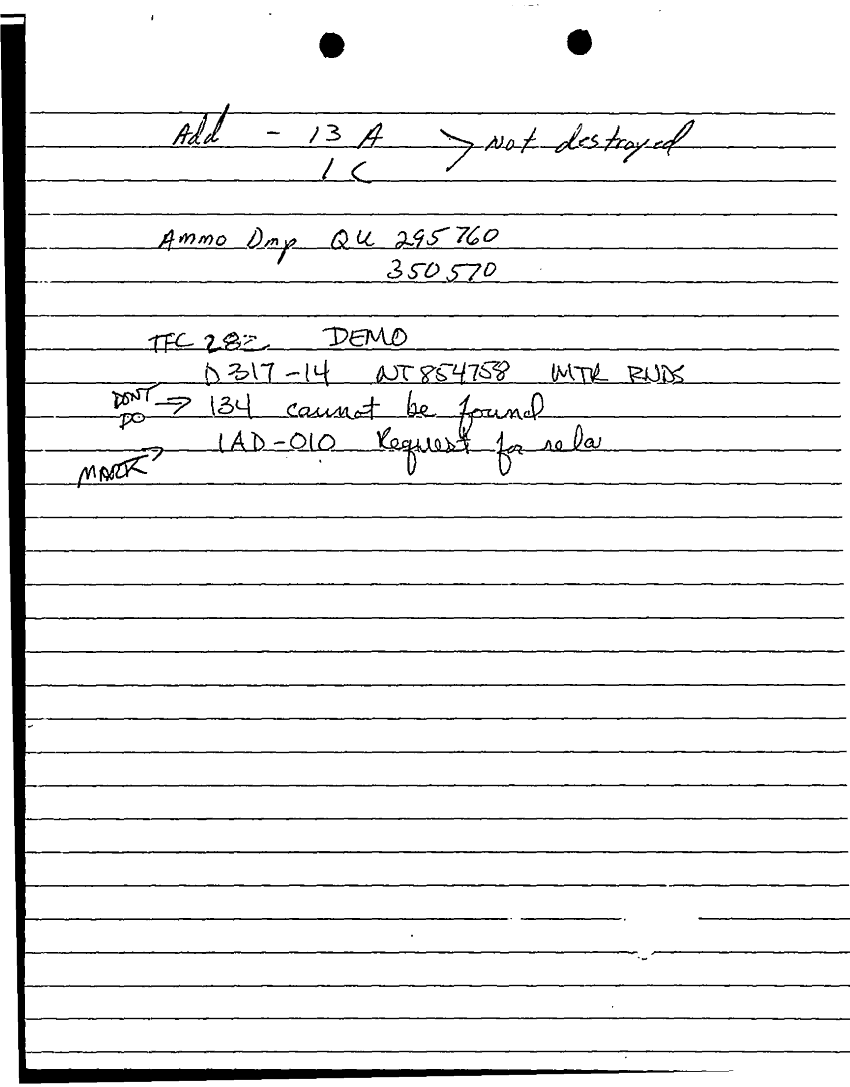 Add - 13 A > Not destroyed
1 C
Ammo Dmp QU 295760
350570
TFC 282 DEMO
D317-14 NT854758 MTR RNDS
DONT DO → 134 cannot be found
1AD-010 Request for rela
MARK →